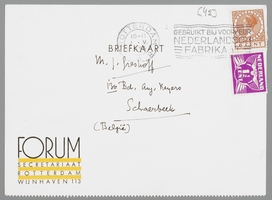 [42]
ROTTERDAM
GEBRUIKT BIJ VOORKEUR
NEDERLANDSCH
FABRIKAAT
BRIEFKAART
NEDERLAND
M. J. Greshoff
130 Bd. Aug. Reyers
Schaerbeek
(België)
FORUM
SECRETARIAAT
ROTTERDAM
WIJNHAVEN 113